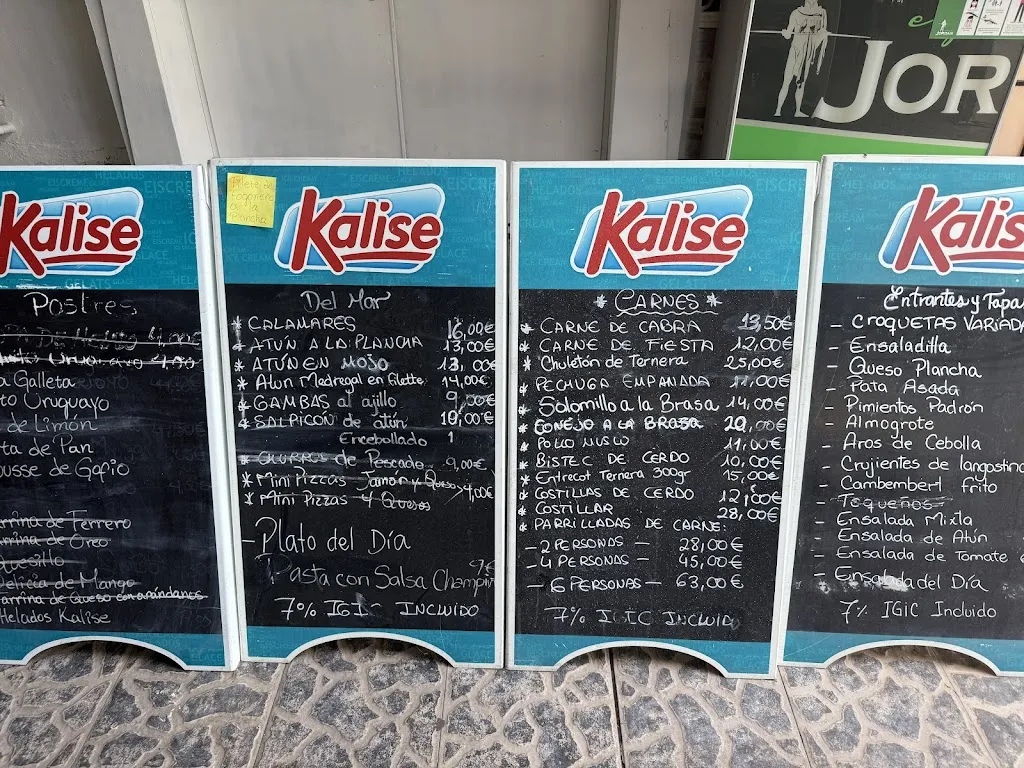 JOR
Kalise
Postres
a Galleta
to Uruguayo
de Limón
ta de Pan
ousse de Gofio
arrina de Ferrero
arrina de Oreo
uesillo
Delicia de Mango
arrina de Queso con arándanos
Helados Kalise
Filete de
a la
plancha
Kalise
Del Mar
* CALAMARES 16,00€
* ATÚN A LA PLANCHA 13,00€
* ATÚN EN MOJO 13,00€
* Atun Madregal en filette 14,00€
* GAMBAS al ajillo 9,00€
* SALPICON de atún 10,00€
Encebollado
* CHURROS de Pescado 9,00€
* Mini Pizzas Jamón y Queso
* Mini Pizzas 4 Quesos 4,00€
- Plato del Día
Pasta con Salsa Champiñ 9€
7% IGIC INCLUIDO
Kalise
* CARNES *
* CARNE DE CABRA 13,50€
* CARNE DE FIESTA 12,00€
* Chuletón de Ternera 25,00€
* PECHUGA EMPANADA 11,00€
* Solomillo a la Brasa 14,00€
* CONEJO A LA BRASA 20,00€
* POLLO MUSLO 11,00€
* BISTEC DE CERDO 10,00€
* Entrecot Ternera 300gr 15,00€
* COSTILLAS DE CERDO 12,00€
* COSTILLAR 28,00€
* PARRILLADAS DE CARNE:
- 2 PERSONAS - 28,00€
- 4 PERSONAS - 45,00€
- 6 PERSONAS - 63,00€
7% IGIC INCLUID
Kalis
Entrantes y Tapa
- CROQUETAS VARIADA
- Ensaladilla
- Queso Plancha
- Pata Asada
- Pimientos Padrón
- Almogrote
- Aros de Cebolla
- Crujientes de langostino
- Cambembert frito
- Tequeños
- Ensalada Mixta
- Ensalada de Atún
- Ensalada de Tomate
- Ensalada del Día
7% IGIC Incluido